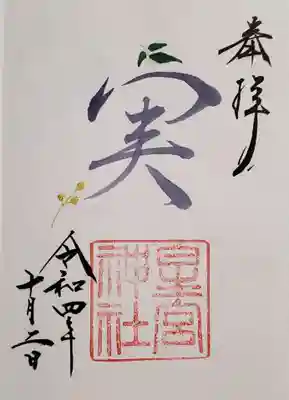 奉拝
実
皇宮
神社
令和四年
十月二日